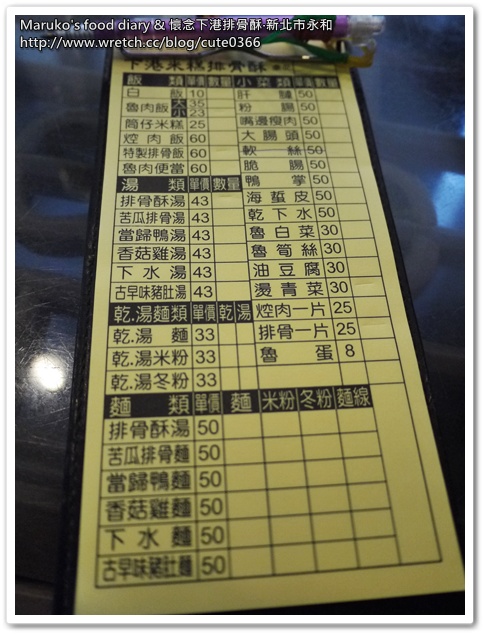 Maruko's food diary & 懷念下港排骨酥‧新北市永和
http://www.wretch.cc/blog/cute0366
下港米糕排骨酥
飯 類 單價 數量
白 飯 10
魯肉飯 大 35 小 23
筒仔米糕 25
焢肉飯 60
特製排骨飯 60
魯肉便當 60
湯 類 單價 數量
排骨酥湯 43
苦瓜排骨湯 43
當歸鴨湯 43
香菇雞湯 43
下水湯 43
古早味豬肚湯 43
乾.湯麵類 單價 乾 湯
乾.湯 麵 33
乾.湯米粉 33
乾.湯冬粉 33
小菜類 單價 數量
肝 膶 50
粉 腸 50
嘴邊瘦肉 50
大腸頭 50
軟 絲 50
脆 腸 50
鴨 掌 50
海蜇皮 50
乾下水 50
魯白菜 30
魯筍絲 30
油豆腐 30
燙青菜 30
焢肉一片 25
排骨一片 25
魯 蛋 8
麵 類 單價 麵 米粉 冬粉 麵線
排骨酥湯 50
苦瓜排骨麵 50
當歸鴨麵 50
香菇雞麵 50
下水麵 50
古早味豬肚麵 50